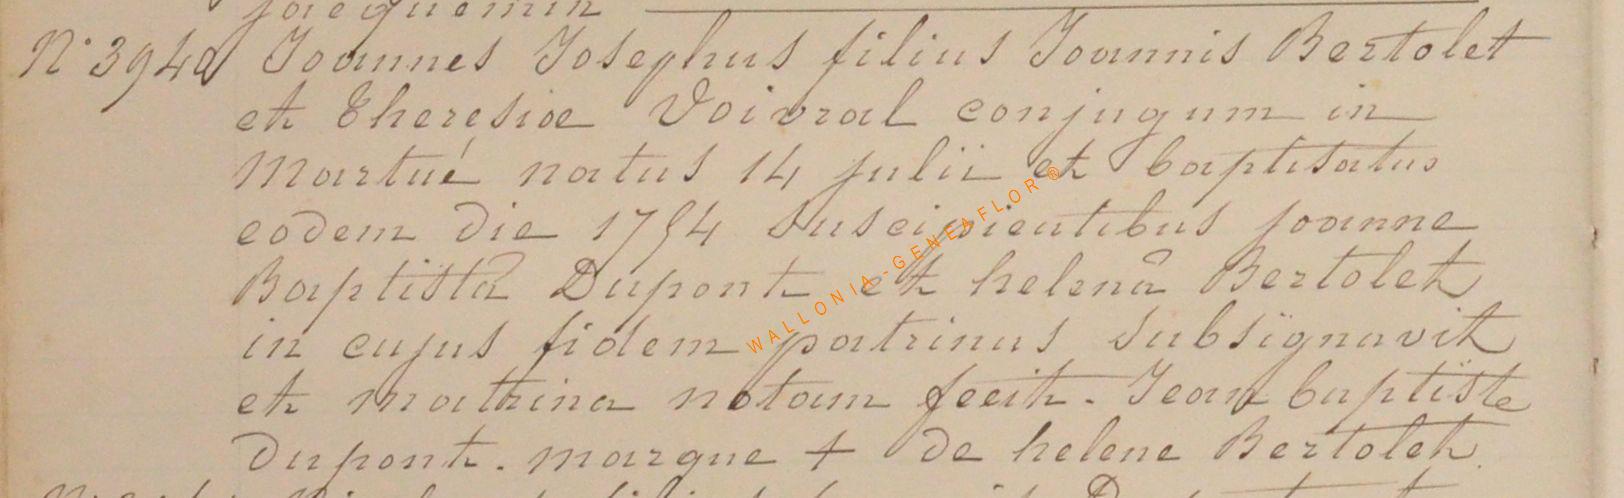 jacquemin
N° 3940 Joannes Josephus filius Joannis Bertolet
et Theresiæ Voivral conjugum in
Martué natus 14 julii et baptisatus
eodem die 1754 suscipientibus joanne
Baptistâ Dupont et helenâ Bertolet
in cujus fidem patrinus subsignavit
et matrina notam fecit. Jean baptiste
Dupont. marque + de helene Bertolet
WALLONIA-GENEAFLOR®